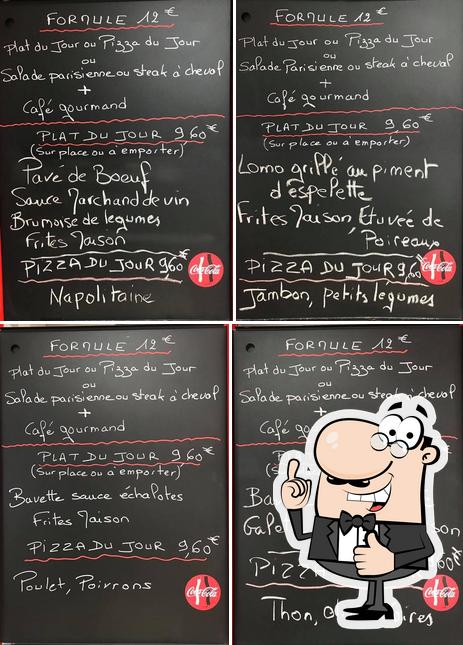 FORMULE 12 €
Plat du Jour ou Pizza du Jour
ou
Salade parisienne ou steak à cheval
+
Café gourmand
PLAT DU JOUR 9,60€
(Sur place ou à emporter)
Pavé de Boeuf
Sauce Marchand de vin
Brumoise de légumes
Frites Maison
PIZZA DU JOUR 9,60€
Napolitaine
Coca-Cola
FORMULE 12 €
Plat du Jour ou Pizza du Jour
ou
Salade Parisienne ou steak à cheval
+
Café gourmand
PLAT DU JOUR 9,60€
(Sur place ou à emporter)
Lomo grillé au piment
d'espelette
Frites Maison Etuvée de
Poireaux
PIZZA DU JOUR 9,60€
Jambon, petits légumes
Coca-Cola
FORMULE 12 €
Plat du Jour ou Pizza du Jour
ou
Salade parisienne ou steak à cheval
+
Café gourmand
PLAT DU JOUR 9,60€
(Sur place ou à emporter)
Bavette sauce échalotes
Frites Maison
PIZZA DU JOUR 9,60€
Poulet, Poivrons
Coca-Cola
FORMULE 12 €
Plat du Jour ou Pizza du Jour
ou
Salade parisienne ou steak à cheval
+
Café
Thon,
Coca-Cola